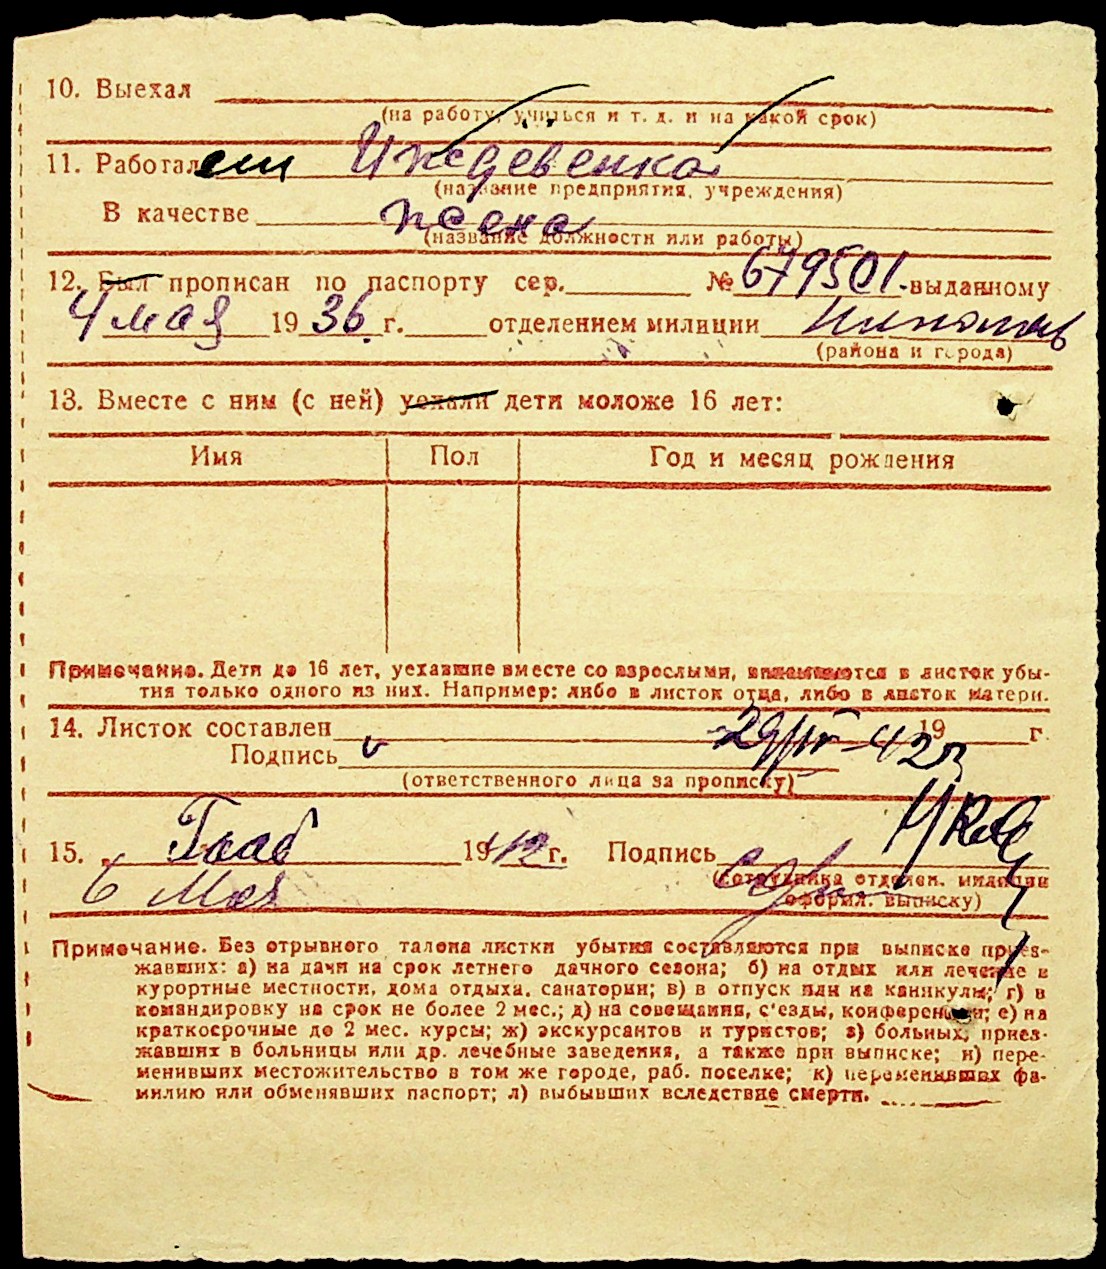 10. Выехал
(на работу, учиться и т. д. и на какой срок)
11. Работал Иждевенка
(название предприятия, учреждения)
В качестве жена
(название должности или работы)
12. Был прописан по паспорту сер. № 679501. выданному
4 мая 1936 г. отделением милиции
(района и города)
13. Вместе с ним (с ней) уехали дети моложе 16 лет:
Имя Пол Год и месяц рождения
Примечание. Дети до 16 лет, уехавшие вместе со взрослыми, вписываются в листок убы-
тия только одного из них. Например: либо в листок отца, либо в листок матери.
14. Листок составлен 29/IV-42 19 г.
Подпись
(ответственного лица за прописку)
15. 1942 г. Подпись
6 Мая (сотрудника отделен. милиции
оформл. выписку)
Примечание. Без отрывного талона листки убытия составляются при выписке приез-
жавших: а) на дачи на срок летнего дачного сезона; б) на отдых или лечение в
курортные местности, дома отдыха, санатории; в) в отпуск или на каникулы; г) в
командировку на срок не более 2 мес.; д) на совещания, с'езды, конференции; е) на
краткосрочные до 2 мес. курсы; ж) экскурсантов и туристов; з) больных, приез-
жавших в больницы или др. лечебные заведения, а также при выписке; и) пере-
менивших местожительство в том же городе, раб. поселке; к) переменивших фа-
милию или обменявших паспорт; л) выбывших вследствие смерти.